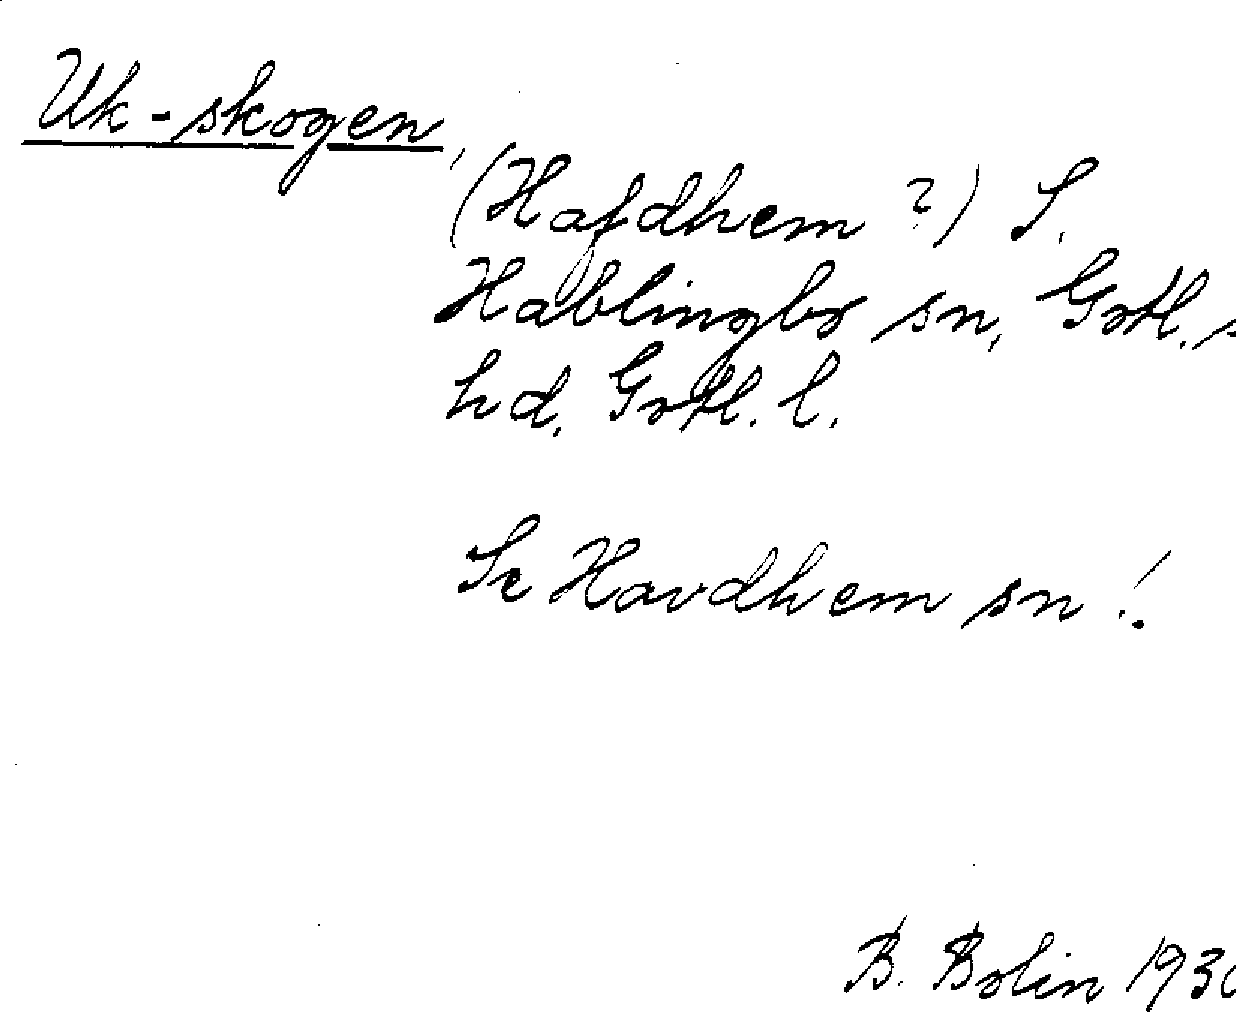 Uk-skogen,
(Hafdhem ?) S.
Hablingbo sn, Gotl. s
hd, Gotl. l.
Se Havdhem sn!
B. Bolin 193